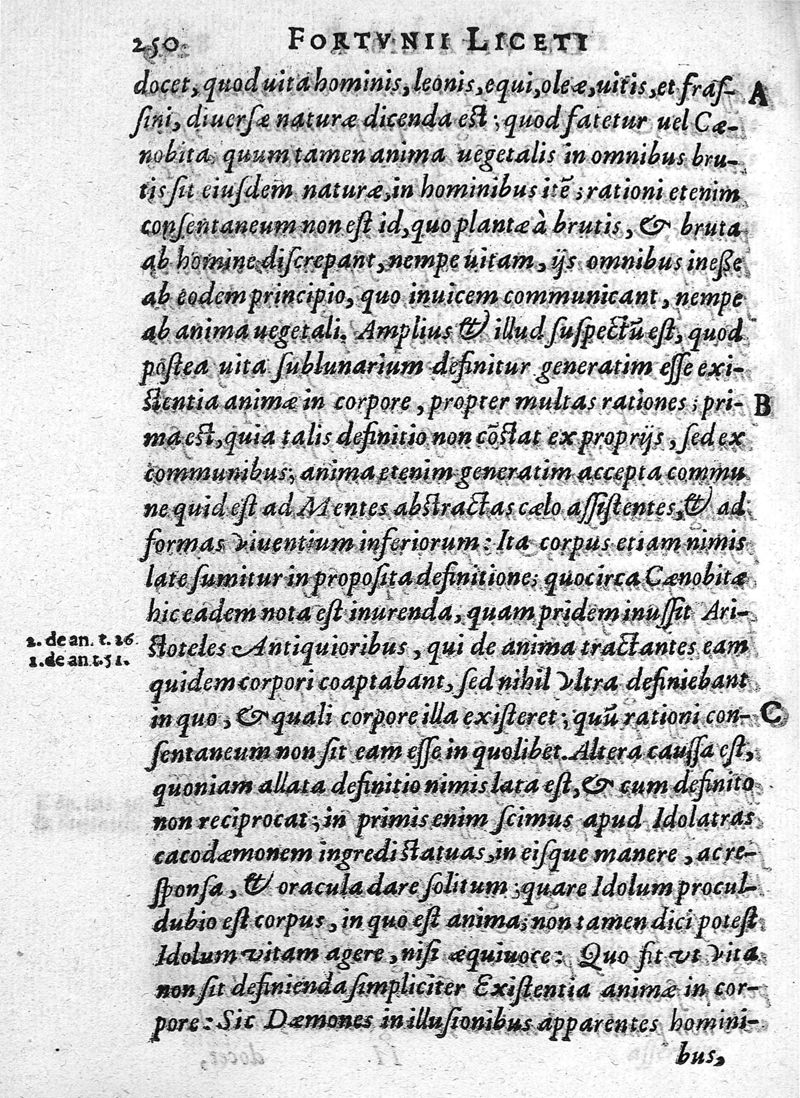 250. FORTVNII LICETI
docet, quod uita hominis, leonis, equi, oleæ, uitis, et fraſ- A
ſini, diuerſæ naturæ dicenda eſt; quod fatetur uel Cæ-
nobita, quum tamen anima uegetalis in omnibus bru-
tis ſit eiuſdem naturæ, in hominibus itẽ; rationi etenim
conſentaneum non eſt id, quo plantæ à brutis, & bruta
ab homine diſcrepant, nempe uitam, ijs omnibus ineße
ab eodem principio, quo inuicem communicant, nempe
ab anima uegetali. Amplius & illud ſuſpectũ eſt, quod
poſtea uita ſublunarium definitur generatim eſſe exi-
ſtentia animæ in corpore, propter multas rationes; pri- B
ma eſt, quia talis definitio non cõſtat ex proprijs, ſed ex
communibus; anima etenim generatim accepta commu
ne quid eſt ad Mentes abſtractas cælo aſſiſtentes, & ad
formas viuentium inferiorum: Ita corpus etiam nimis
late ſumitur in propoſita definitione; quocirca Cænobitæ
hic eadem nota eſt inurenda, quam pridem inuſſit Ari-
2. de an. t. 26. ſtoteles Antiquioribus, qui de anima tractantes eam
1. de an. t. 51. quidem corpori coaptabant, ſed nihil vltra definiebant
in quo, & quali corpore illa exiſteret; quũ rationi con- C
ſentaneum non ſit eam eſſe in quolibet. Altera cauſſa eſt,
quoniam allata definitio nimis lata eſt, & cum definito
non reciprocat; in primis enim ſcimus apud Idolatras
cacodæmonem ingredi ſtatuas, in eiſque manere, ac re-
ſponſa, & oracula dare ſolitum; quare Idolum procul-
dubio eſt corpus, in quo eſt anima; non tamen dici poteſt
Idolum vitam agere, niſi æquiuoce: Quo fit vt vita
non ſit definienda ſimpliciter Exiſtentia animæ in cor-
pore: Sic Dæmones in illuſionibus apparentes homini-
bus,